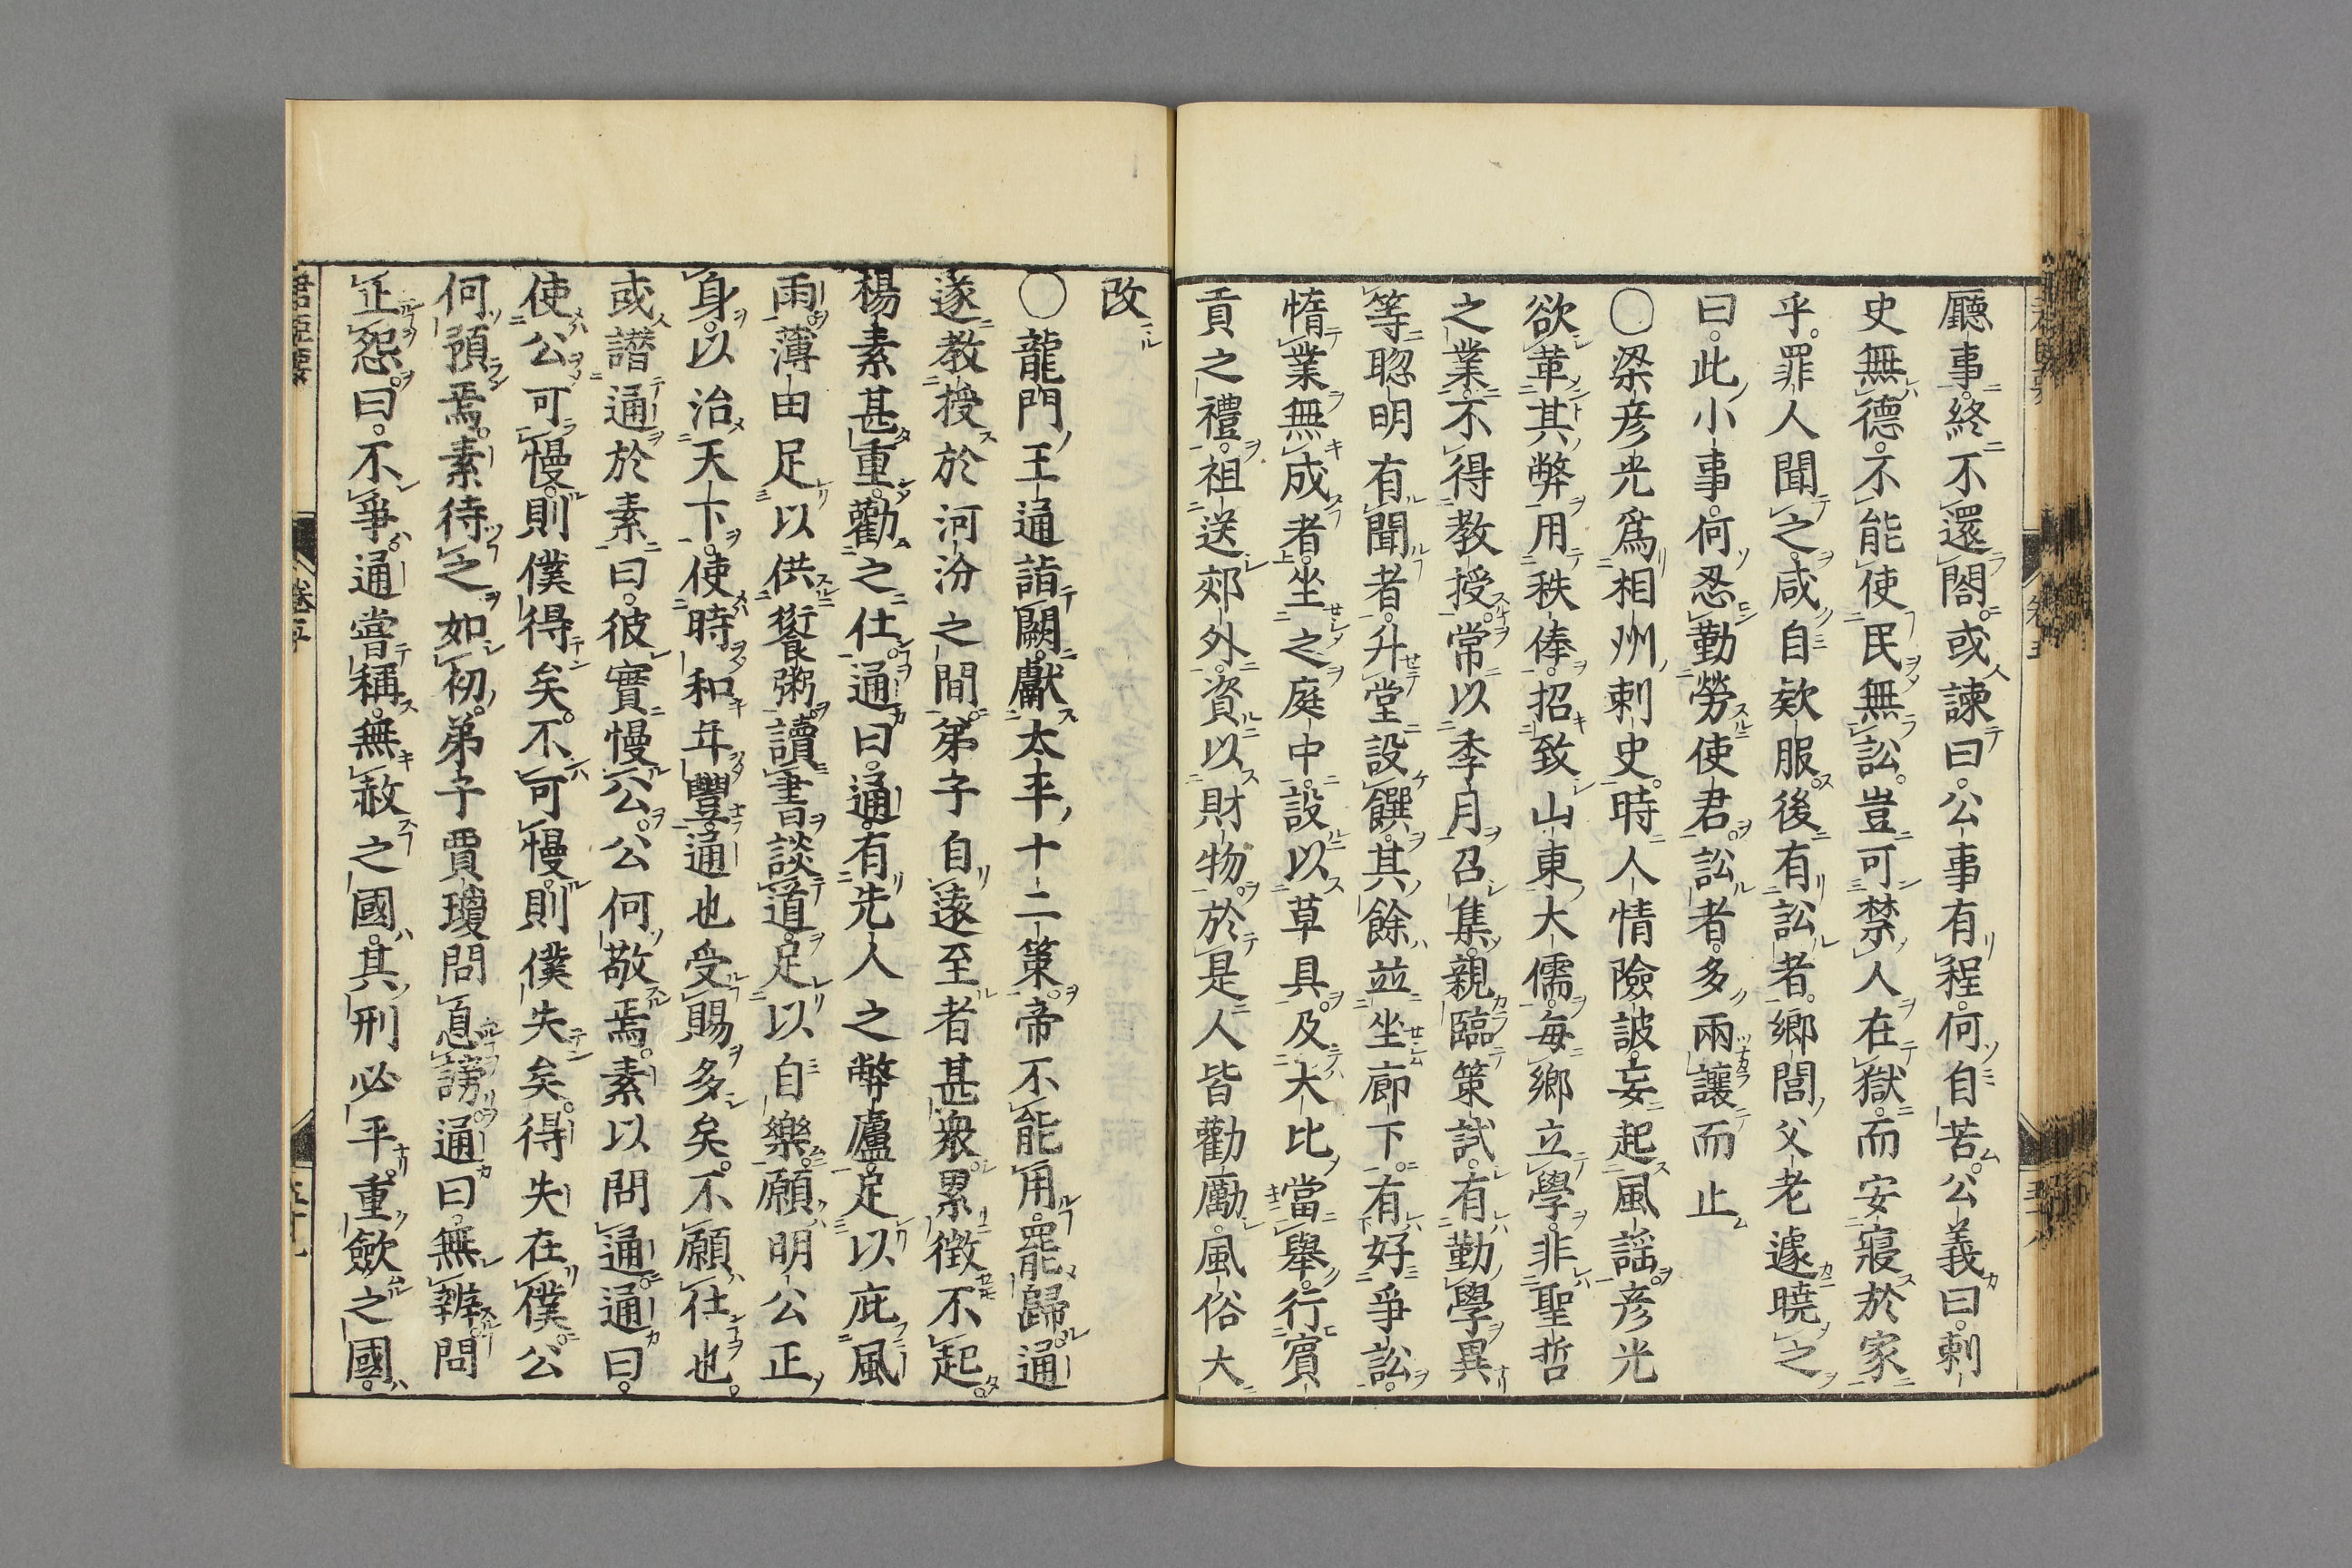 廳事終不還閤或諫曰公事有程何自苦公義曰刺
史無德不能使民無訟豈可禁人在獄而安寢於家
乎罪人聞之咸自欵服後有訟者鄉閭父老遽曉之
曰此小事何忍勤勞使君訟者多兩讓而止
〇梁彦光爲相州刺史時人情險詖妄起風謡彦光
欲革其弊用秩俸招致山東大儒每鄉立學非聖哲
之業不得教授常以季月召集親臨策試有勤學異
等聦明有聞者升堂設饌其餘並坐廊下有好爭訟
惰業無成者坐之庭中設以草具及大比當舉行賓
貢之禮祖送郊外資以財物於是人皆勸勵風俗大
改
〇龍門王通詣闕獻太平十二策帝不能用罷歸通
遂教授於河汾之間弟子自遠至者甚衆累徴不起
楊素甚重勸之仕通曰通有先人之弊廬足以庇風
雨薄田足以供饘粥讀書談道足以自樂願明公正
身以治天下使時和年豐通也受賜多矣不願仕也
或譛通於素曰彼實慢公公何敬焉素以問通通曰
使公可慢則僕得矣不可慢則僕失矣得失在僕公
何預焉素待之如初弟子賈瓊問息謗通曰無辨問
止怨曰不爭通嘗稱無赦之國其刑必平重歛之國
卷五